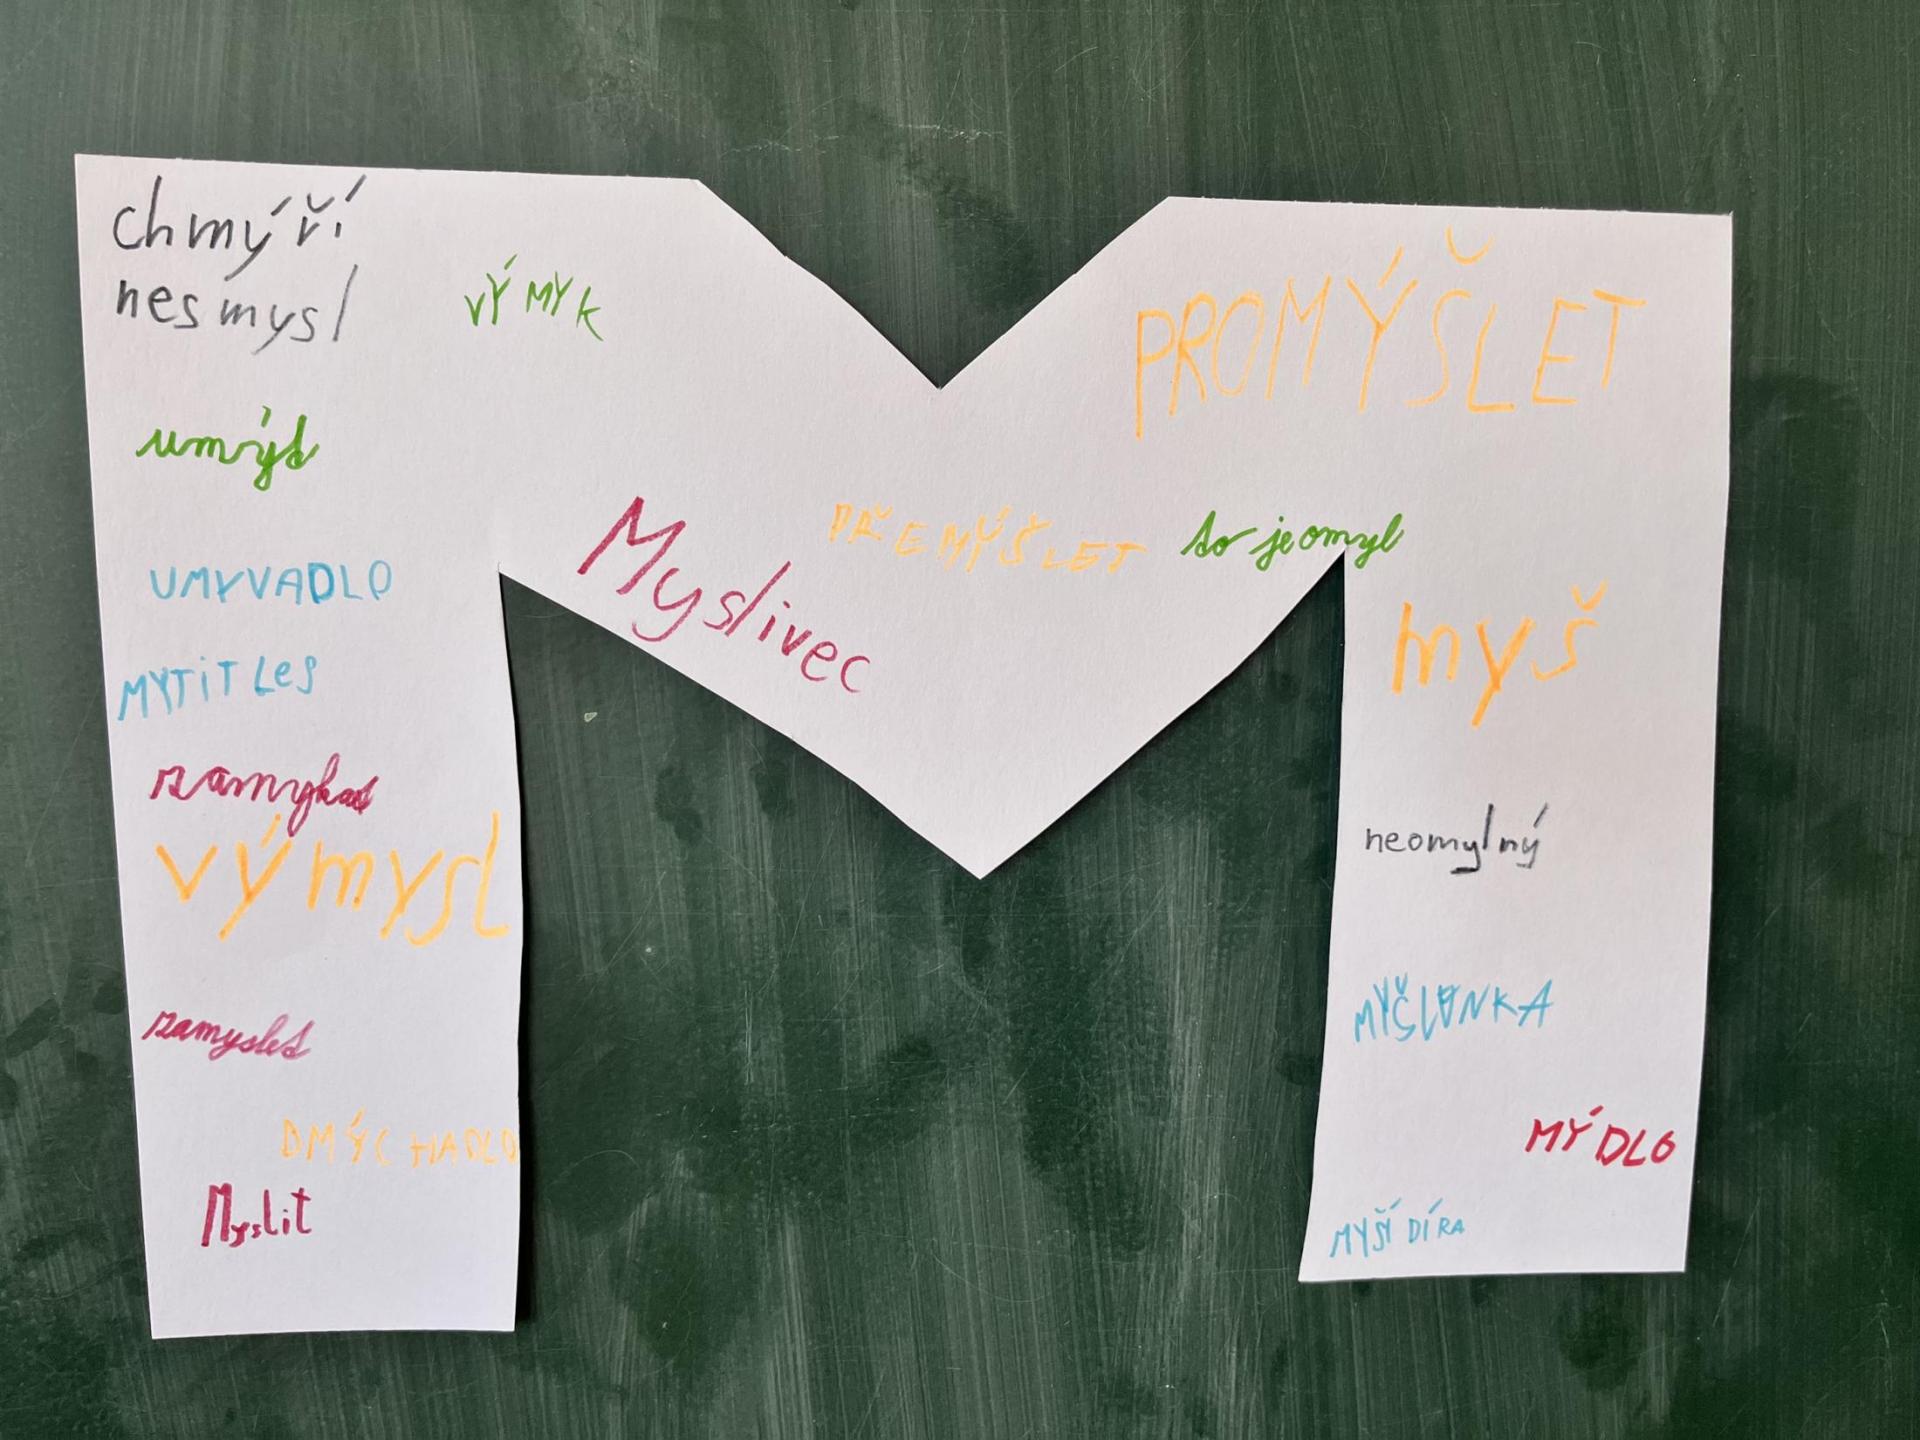 chmýří
nesmysl
VÝMYK
PROMÝŠLET
umýt
Myslivec
PŘEMÝŠLET
to je omyl
UMYVADLO
myš
MYTiTLeS
zamykat
výmysl
neomylný
zamyslet
MYŠLENKA
DMÝCHADLO
MÝDLO
Myslit
MYŠÍ DÍRA